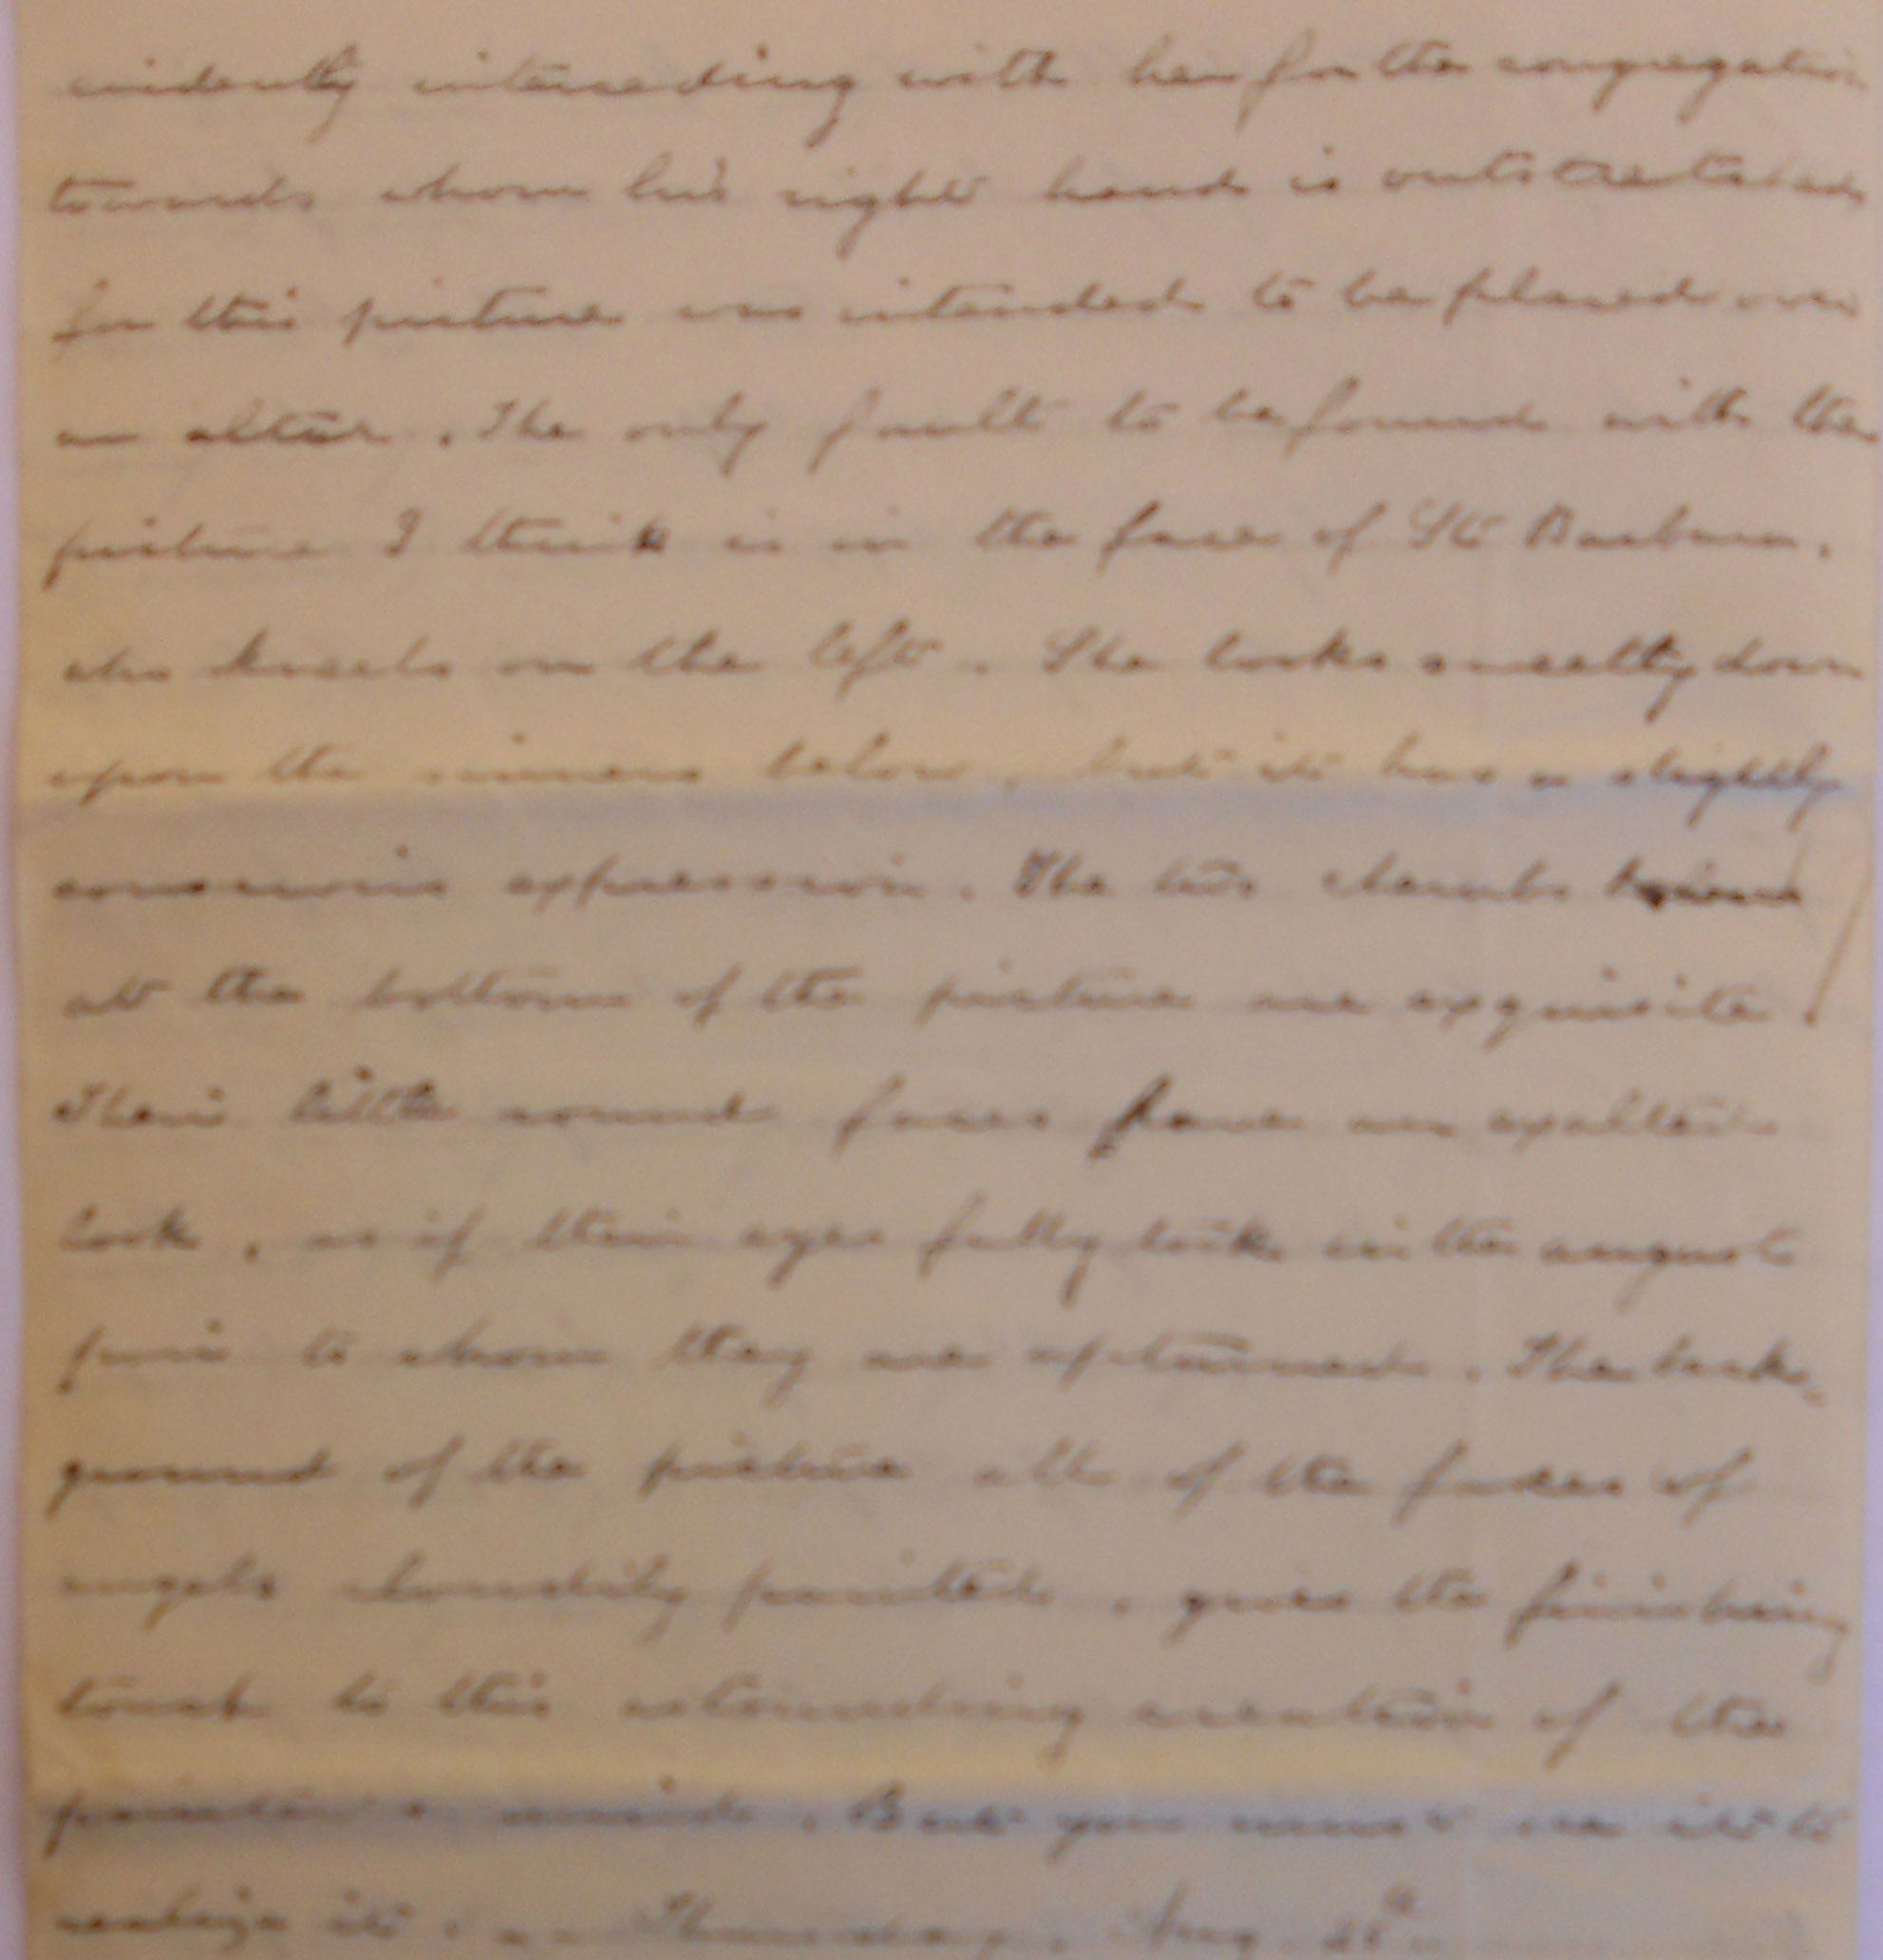 evidently interceding with her for the congregation
towards whom his right hand is outstretched
for this picture was intended to be placed over
an altar. The only fault to be found with the
picture I think is in the face of St Barbara,
who kneels on the left. She looks sweetly down
upon the sinners below, but it has a slightly
conscious expression. The two cherubs below
at the bottom of the picture are exquisite.
Their little round faces have an exalted
look, as if their eyes fully took in the august
pair to whom they are upturned. The back-
ground of the picture all of the faces of
angels cloudily painted, gives the finishing
touch to this astounding creation of the
painter's mind. But you must see it to
realize it. -- Thursday, Aug